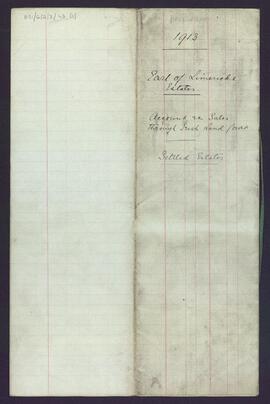 1913
Earl of Limerick's
Estates
Account re Sales
through Irish Land
Settled Estates